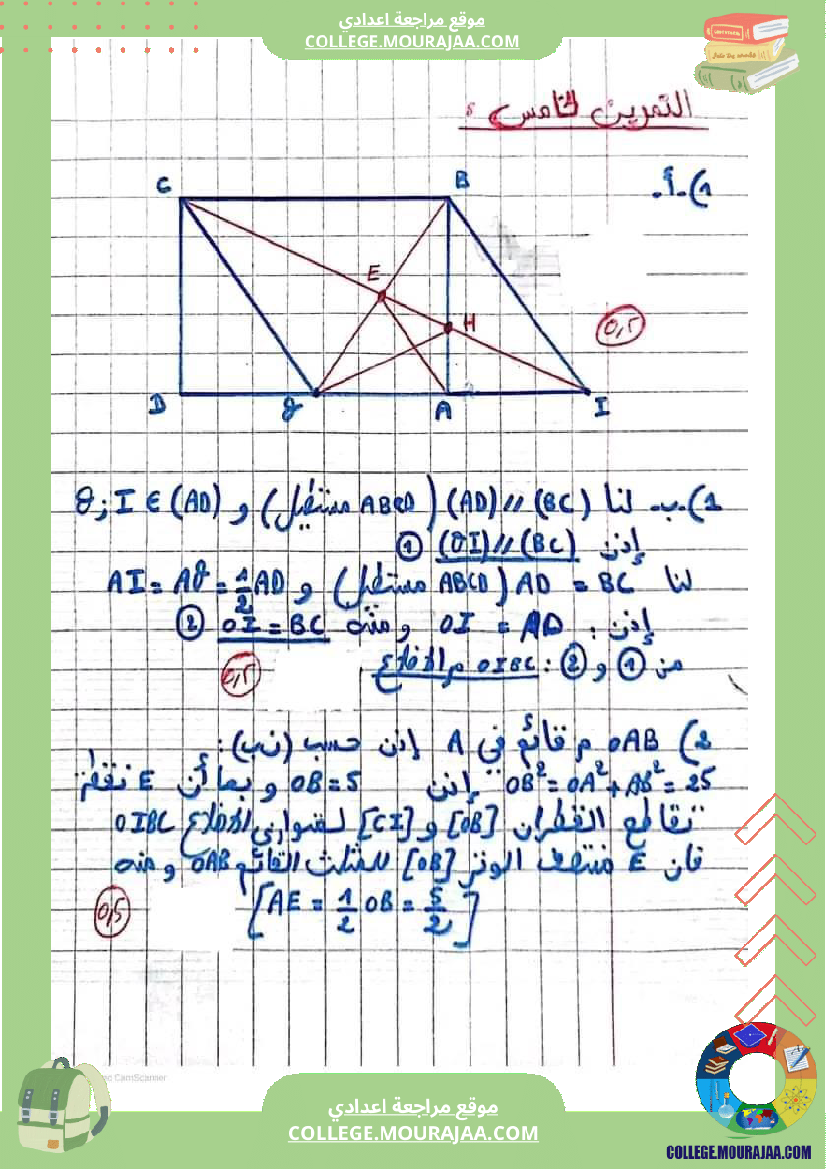 موقع مراجعة اعدادي
COLLEGE.MOURAJAA.COM
التمرين الخامس :
1)-أ-
C
B
E
H
0,5
D
J
A
I
1)-ب- لنا (BC) // (AD) (ABCD مستطيل) و J ; I ∈ (AD)
إذن (JI) // (BC) ①
لنا AD = BC (ABCD مستطيل) و AI = AJ = 1/2 AD
إذن : JI = AD ومنه JI = BC ②
من ① و ② : JIBC م الأضلاع
0,5
2) JAB م قائم في A إذن حسب (ف ب) :
JB² = JA² + AB² = 25 إذن JB = 5 وبما أن E نقطة
تقاطع القطران [JB] و [CI] لمتوازي الأضلاع JIBC
فان E منتصف الوتر [JB] للمثلث القائم JAB ومنه
[AE = 1/2 JB = 5/2]
0,5
CamScanner
موقع مراجعة اعدادي
COLLEGE.MOURAJAA.COM
COLLEGE.MOURAJAA.COM